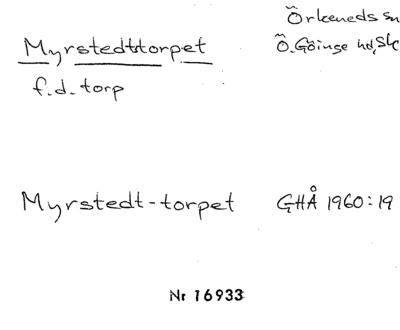 Örkeneds sn
Myrstedttorpet
Ö. Göinge hd, Sk
f.d. torp
Myrstedt-torpet GHÅ 1960:19
Nr 16933